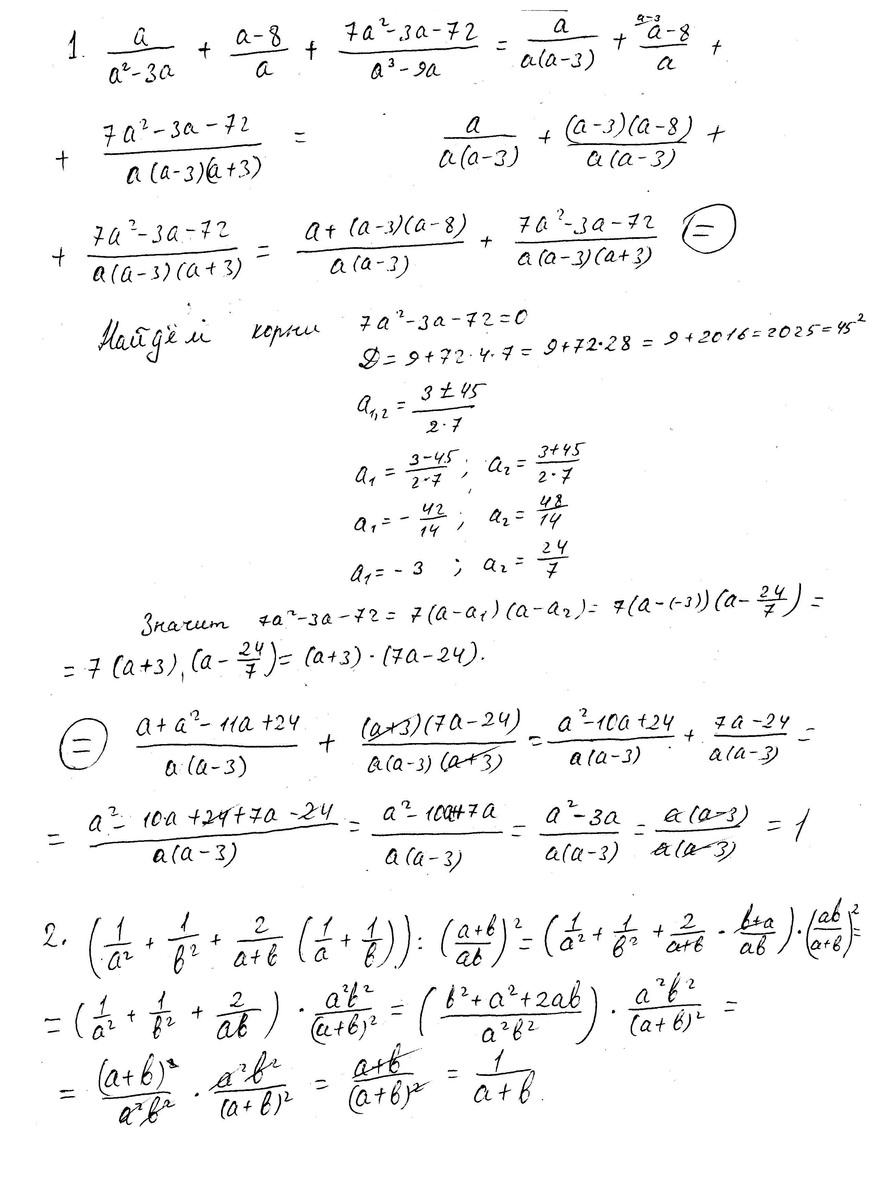 1. a/(a²-3a) + (a-8)/a + (7a²-3a-72)/(a³-9a) = a/(a(a-3)) + ᵃ⁻³(a-8)/a +
+ (7a²-3a-72)/(a(a-3)(a+3)) = a/(a(a-3)) + ((a-3)(a-8))/(a(a-3)) +
+ (7a²-3a-72)/(a(a-3)(a+3)) = (a+(a-3)(a-8))/(a(a-3)) + (7a²-3a-72)/(a(a-3)(a+3)) (=)
Найдём корни 7a²-3a-72=0
D=9+72·4·7=9+72·28=9+2016=2025=45²
a₁,₂ = (3±45)/(2·7)
a₁ = (3-45)/(2·7) ; a₂ = (3+45)/(2·7)
a₁ = -42/14 ; a₂ = 48/14
a₁ = -3 ; a₂ = 24/7
Значит 7a²-3a-72 = 7(a-a₁)(a-a₂) = 7(a-(-3))(a-24/7) =
= 7(a+3)(a-24/7) = (a+3)·(7a-24).
(=) (a+a²-11a+24)/(a(a-3)) + ((a+3)(7a-24))/(a(a-3)(a+3)) = (a²-10a+24)/(a(a-3)) + (7a-24)/(a(a-3)) =
= (a²-10a+24+7a-24)/(a(a-3)) = (a²-10a+7a)/(a(a-3)) = (a²-3a)/(a(a-3)) = (a(a-3))/(a(a-3)) = 1
2. (1/a² + 1/b² + 2/(a+b) (1/a + 1/b)) : ((a+b)/ab)² = (1/a² + 1/b² + 2/(a+b) · (b+a)/ab) · (ab/(a+b))² =
= (1/a² + 1/b² + 2/ab) · a²b²/(a+b)² = ((b²+a²+2ab)/a²b²) · a²b²/(a+b)² =
= (a+b)²/a²b² · a²b²/(a+b)² = (a+b)/(a+b)² = 1/(a+b).